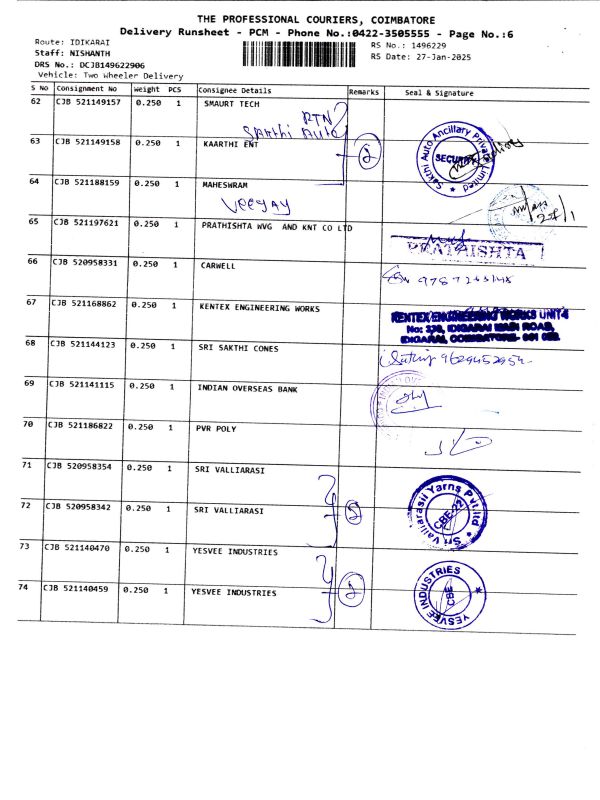 THE PROFESSIONAL COURIERS, COIMBATORE
Delivery Runsheet - PCM - Phone No.:0422-3505555 - Page No.:6
Route: IDIKARAI RS No.: 1496229
Staff: NISHANTH RS Date: 27-Jan-2025
DRS No.: DCJB149622906
Vehicle: Two Wheeler Delivery
S No Consignment No Weight PCS Consignee Details Remarks Seal & Signature
62 CJB 521149157 0.250 1 SMAURT TECH
RTN
Sakthi Auto
63 CJB 521149158 0.250 1 KAARTHI ENT 2
Sakthi Auto Ancillary Private Limited
SECURITY
64 CJB 521188159 0.250 1 MAHESWRAM
VEEJAY
27/1
65 CJB 521197621 0.250 1 PRATHISHTA WVG AND KNT CO LTD
PRATHISHTA
66 CJB 520958331 0.250 1 CARWELL
67 CJB 521168862 0.250 1 KENTEX ENGINEERING WORKS
KENTEX ENGINEERING WORKS UNIT4
No: 3/8, IDIGARAI MAIN ROAD,
IDIGARAI, COIMBATORE- 641 022.
68 CJB 521144123 0.250 1 SRI SAKTHI CONES
9629452954
69 CJB 521141115 0.250 1 INDIAN OVERSEAS BANK
70 CJB 521186822 0.250 1 PVR POLY
71 CJB 520958354 0.250 1 SRI VALLIARASI
72 CJB 520958342 0.250 1 SRI VALLIARASI 2
Sri Valliarasii Yarns Pvt.Ltd
CBE-22
73 CJB 521140470 0.250 1 YESVEE INDUSTRIES
74 CJB 521140459 0.250 1 YESVEE INDUSTRIES 2
YESVEE INDUSTRIES
CBE